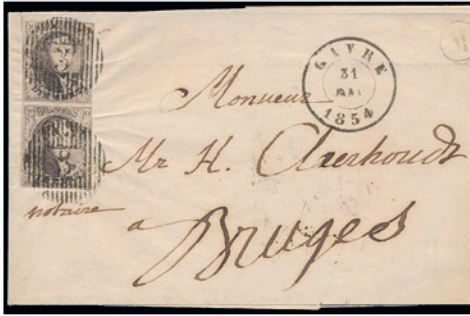 GAVRE
31
MAI
1854
Monsieur
Mr H. Claerhoudt
notaire
a
Bruges